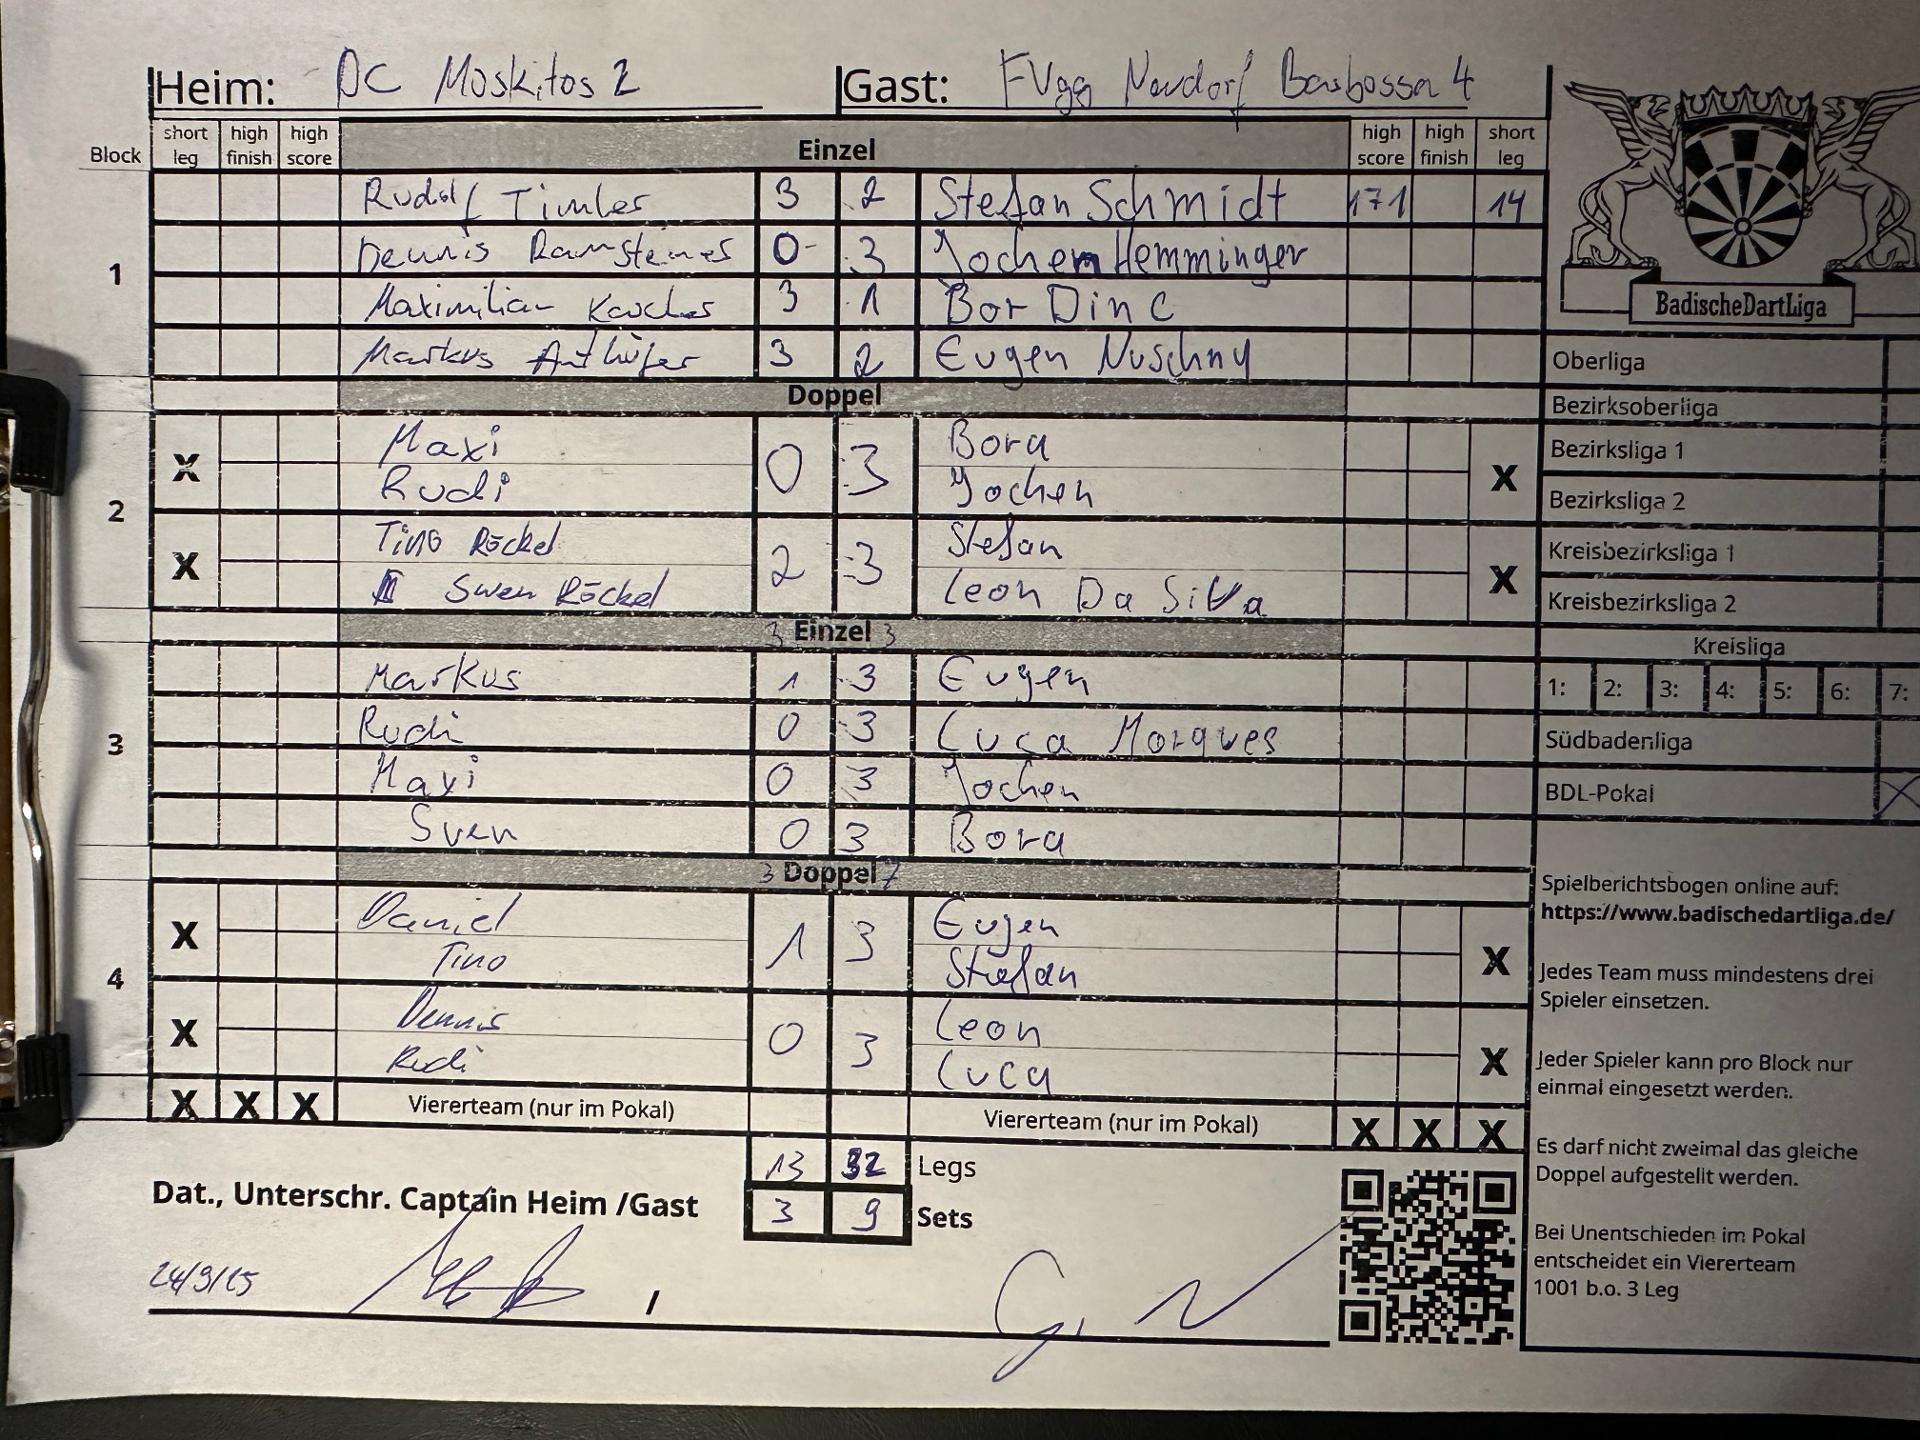 Heim: DC Moskitos 2 Gast: FVgg Neudorf Barbossa 4
Block short leg high finish high score Einzel high score high finish short leg
1
Rudolf Timler 3 2 Stefan Schmidt 171 14
Dennis Ramsteiner 0 3 Jochem Hemminger
Maximilian 3 1 Bor Dinc
Markus Anthöfer 3 2 Eugen Nuschny
Doppel
2
X Maxi 0 3 Bora X
Rudi Jochen
X Tino Röckel 2 3 Stefan X
Swen Röckel Leon Da Silva
3 Einzel 3
3
Markus 1 3 Eugen
Rudi 0 3 Luca Morques
Maxi 0 3 Jochen
Sven 0 3 Bora
3 Doppel 7
4
X Daniel 1 3 Eugen X
Tino Stefan
X Dennis 0 3 Leon X
Rudi Luca
X X X Viererteam (nur im Pokal) Viererteam (nur im Pokal) X X X
13 32 Legs
3 9 Sets
Dat., Unterschr. Captain Heim /Gast
24/9/25 /
BadischeDartLiga
Oberliga
Bezirksoberliga
Bezirksliga 1
Bezirksliga 2
Kreisbezirksliga 1
Kreisbezirksliga 2
Kreisliga
1: 2: 3: 4: 5: 6: 7:
Südbadenliga
BDL-Pokal X
Spielberichtsbogen online auf:
https://www.badischedartliga.de/
Jedes Team muss mindestens drei
Spieler einsetzen.
Jeder Spieler kann pro Block nur
einmal eingesetzt werden.
Es darf nicht zweimal das gleiche
Doppel aufgestellt werden.
Bei Unentschieden im Pokal
entscheidet ein Viererteam
1001 b.o. 3 Leg